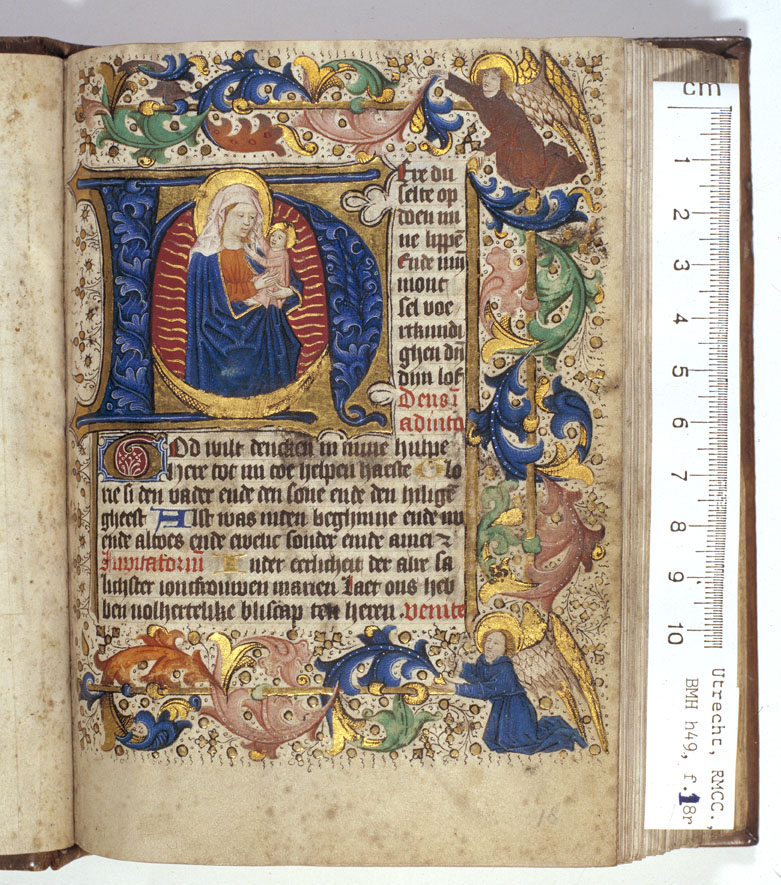 Ere du
selte op
doen mi
ne lippē
Ende mij
mont
sel voe
rtkundi
ghen dij
dijn lof
Deus ī
adiuto
God wilt dencken in mine hulpe
here tot mi toe helpen haeste Glo
rie si den vader ende den sone ende den hilighē
gheest Alst was inden beghinne ende nu
ende altoes ende ewelic sonder einde amen
Inuitatoriū In der eerlicheit der alre sa
lichster ioncfrouwen marien Laet ons heb
ben uolhertelike bliscap ten heren venite
18
cm
1
2
3
4
5
6
7
8
9
10
Utrecht, RMCC.,
BMH h49, f.18r